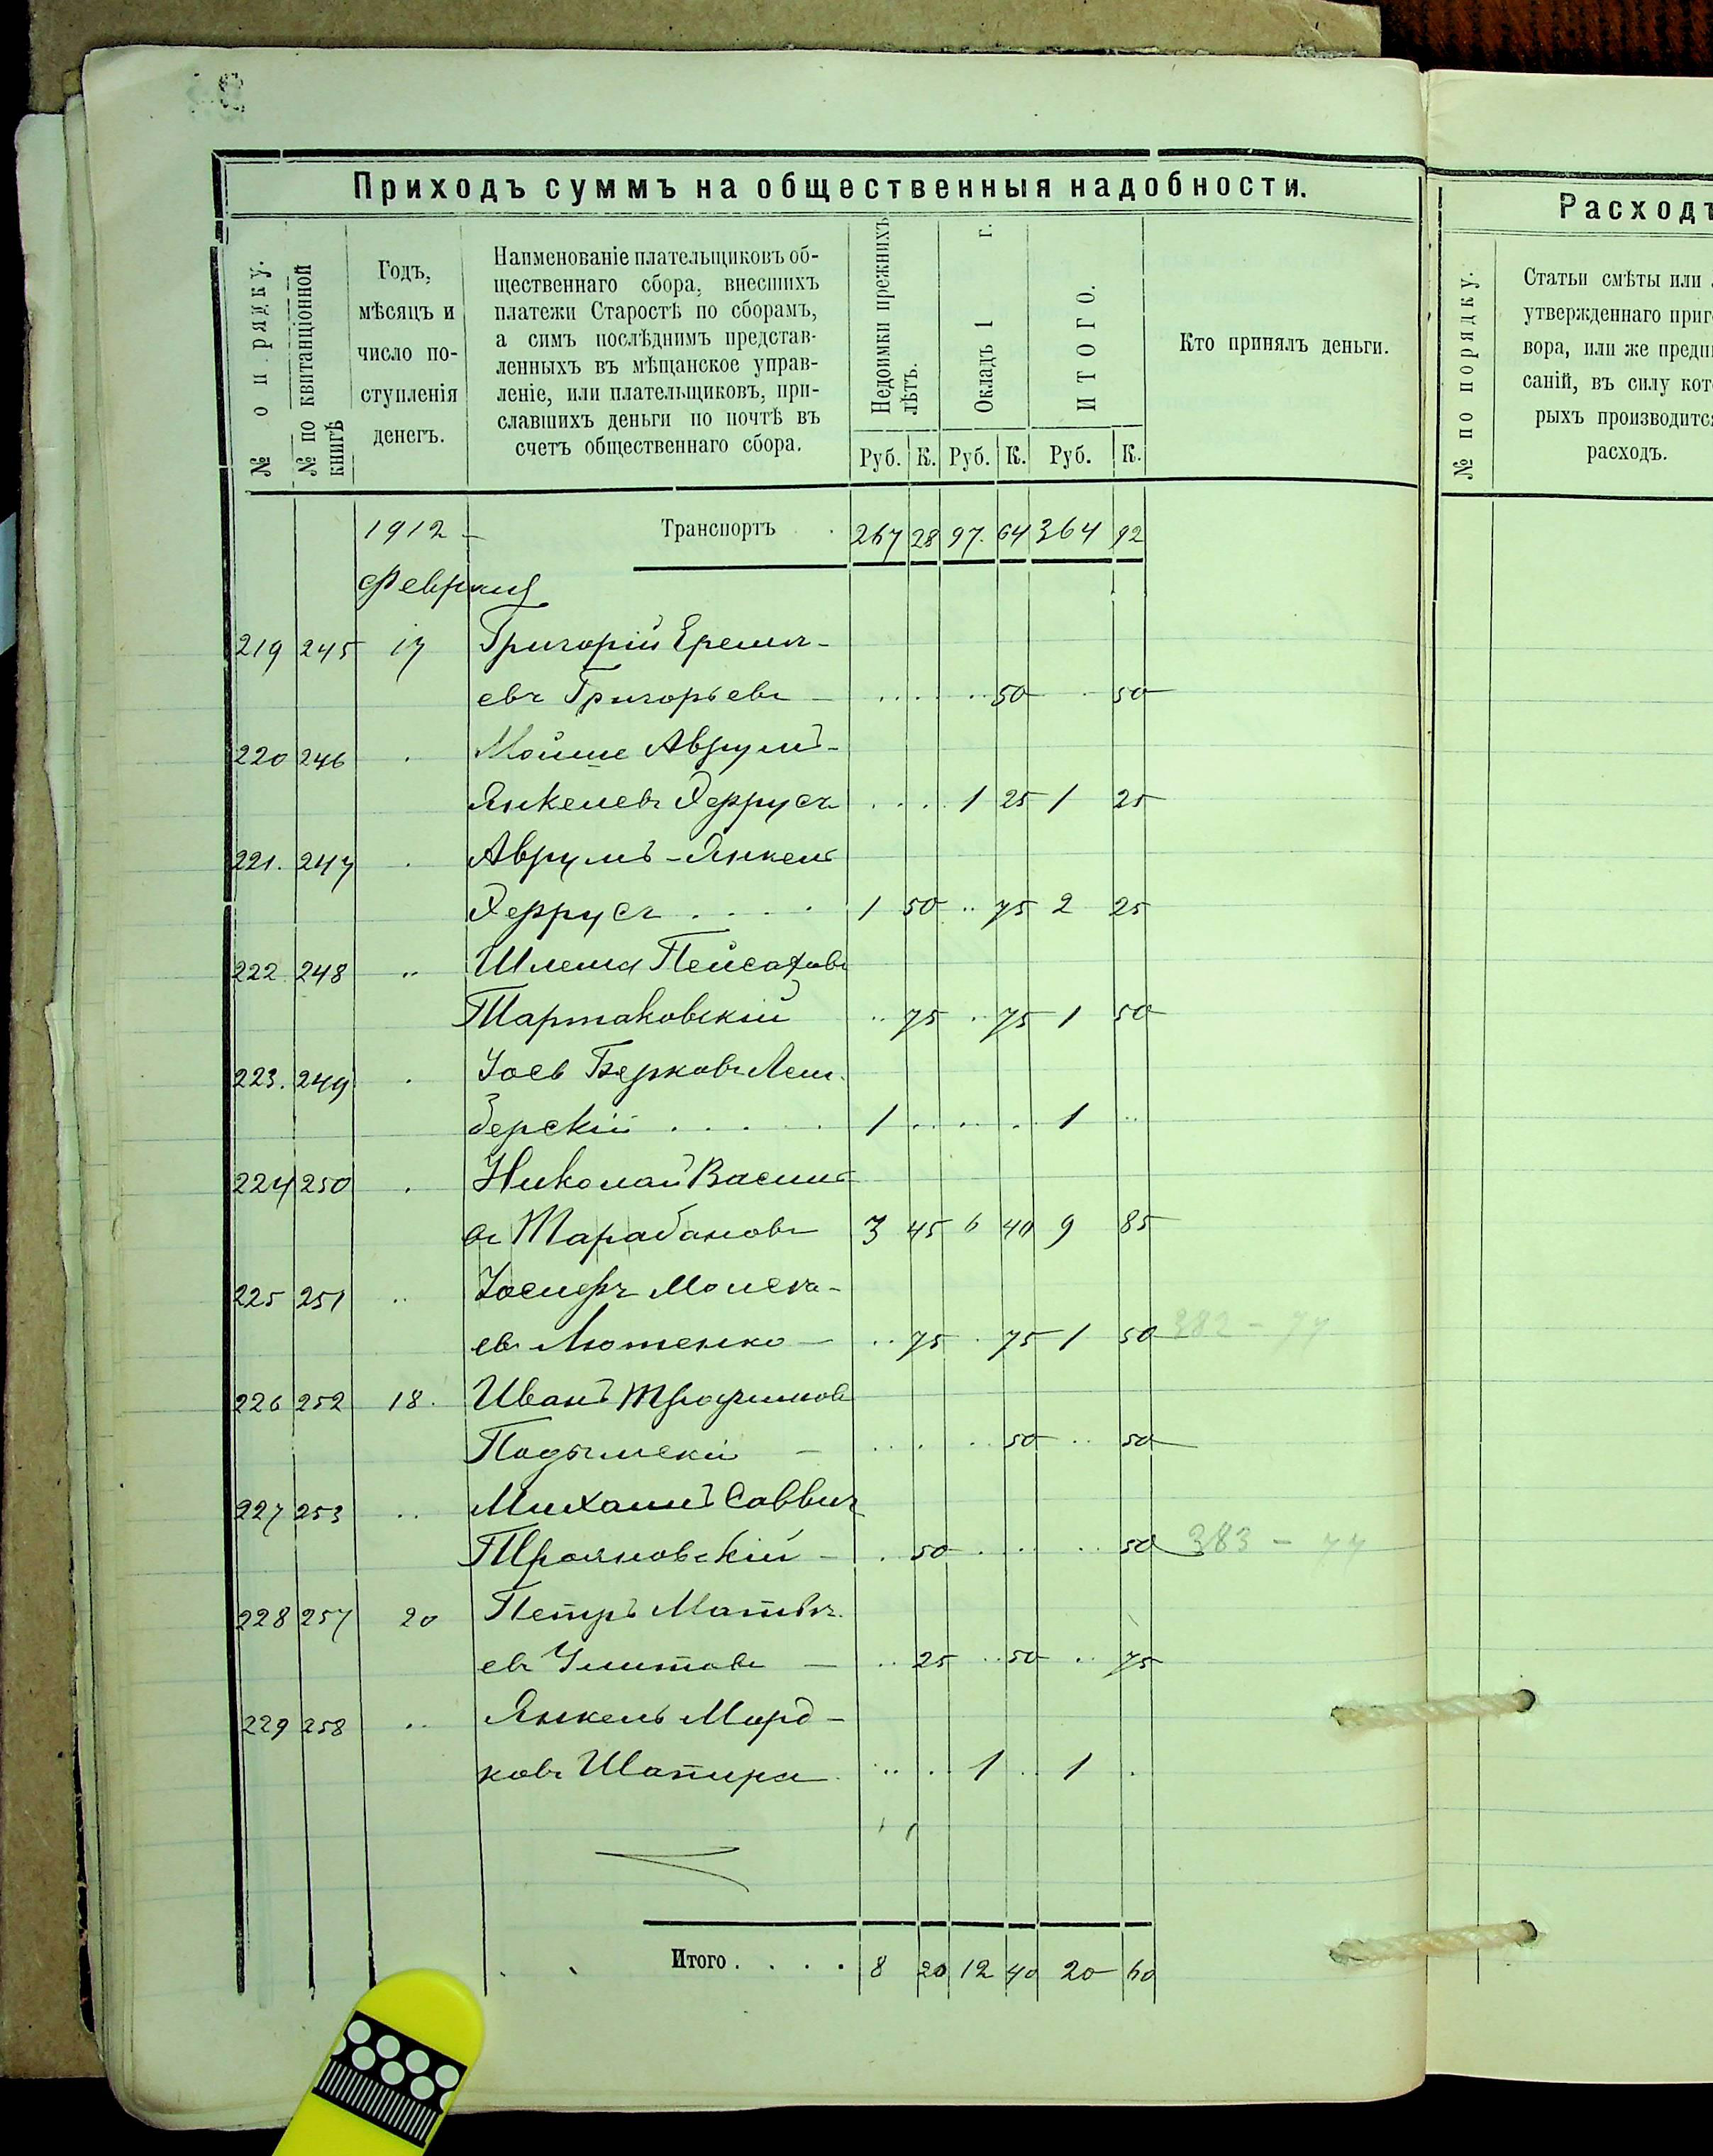 Приходъ суммъ на общественныя надобности.
№ по рядку.
№ по квитанціонной книгѣ
Годъ, мѣсяцъ и число по-
ступленія денегъ.
Наименованіе плательщиковъ об-
щественнаго сбора, внесшихъ
платежи Старостѣ по сборамъ,
а симъ послѣднимъ представ-
ленныхъ въ мѣщанское управ-
леніе, или плательщиковъ, при-
славшихъ деньги по почтѣ въ
счетъ общественнаго сбора.
Недоимки прежнихъ лѣтъ.
Окладъ 1 г.
ИТОГО.
Кто принялъ деньги.
Руб. К. Руб. К. Руб. К.
1912 - Транспортъ 267 28 97. 64 364 92
Февраля
219 245 17 Григорій Ереме-
евъ Григорьевъ - 50 50
220 246 . Мойше Аврумъ-
Янкелевъ Херрусъ 1 25 1 25
221. 247 . Аврумъ-Янкель
Херрусъ . . . . 1 50 .. 75 2 25
222 248 .. Шлема Пейсаховъ
Тартаковскій .. 75 . 75 1 50
223. 249 . Іось Берковъ
зерскій . . . . 1 . . . . 1 ..
224 250 . Николай Василь
въ Тарабановъ 3 45 6 40 9 85
225 251 .. Іосифъ Моисе-
евъ Лютенко - .. 75 . 75 1 50 382 - 77
226 252 18. Иванъ Трофимовъ
Подымскій - 50 .. 50
227 253 .. Михаилъ Саввичъ
Трояновскій - . 50 . . . .. 50 383 - 77
228 257 20 Петръ Матвѣ-
евъ Улитовъ - .. 25 .. 50 .. 75
229 258 .. Янкель Морд-
ковъ Шапира .. . 1 .. 1 .
Итого . . . . 8 20 12 40 20 60
Расходъ
№ по порядку.
Статьи смѣты или
утвержденнаго приго
вора, или же предпи
саній, въ силу кот
рыхъ производится
расходъ.